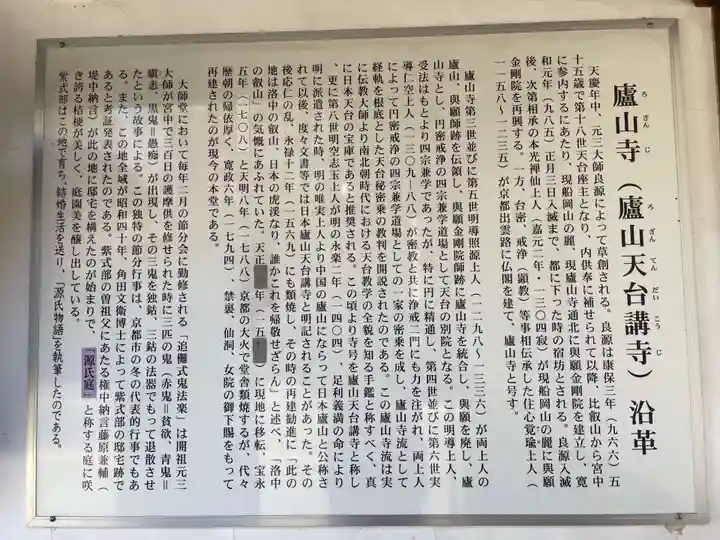 廬山寺（廬山天台講寺）沿革
ろ ざん じ
ろ ざん てん だい こう じ
天慶年中、元三大師良源によって草創される。良源は康保三年（九六六）五
十五歳で第十八世天台座主となり、内供奉に補せられて以降、比叡山から宮中
に参内するにあたり、現船岡山の麓、現廬山寺通北に與願金剛院を建立し、寛
和元年（九八五）正月三日入滅まで、都に下った時の宿坊とされる。良源入滅
後、次第相承の本光禅仙上人（嘉元二年・一三〇四寂）が現船岡山の麓に與願
金剛院を再興する。一方、台密、戒浄（顕教）等事相伝承した住心覚瑜上人（
一一五八～一二三五）が京都出雲路に仏閣を建て、廬山寺と号す。
廬山寺第三世並びに第五世明導照源上人（一二九八～一三三六）が両上人の
廬山、與願師跡を伝領し、與願金剛院師跡に廬山寺を統合し、與願を廃し、廬
山寺とし、円密戒浄の四宗兼学道場として天台の別院となる。この明導上人、
受法はもとより四宗兼学であったが、特に円に精通し、第四世並びに第六世実
導仁空上人（一三〇九～八八）が密教と共に浄戒二門にも力を注がれ、両上人
によって円密戒浄の四宗兼学道場としての一家の密乗を成し、廬山寺流として
経軌を根底とした天台秘密乗の教判を開説されたのである。この廬山寺流は実
に伝教大師より南北朝時代における天台教学の全貌を知る手鑑と称すべく、真
に日本天台の宝庫であると推奨される。この頃より寺号を廬山天台講寺と称し
、更に第八世明空志玉上人が明の永楽二年（一四〇四）、足利義満の命により
明に派遣された時、明の唯実上人より中国の廬山にならって日本廬山と公称さ
れて以後、度々文書等では日本廬山天台講寺と明記されることがあった。その
後応仁の乱、永禄十二年（一五六九）にも類焼し、その時の再建勧進に「此の
地は洛中の叡山、日本の虎渓なり、誰かこれを帰敬せざらん」と述べ、「洛中
の叡山」の気慨にあふれていた、天正 年（一五 ）に現地に移転、宝永
五年（一七〇八）と天明八年（一七八八）京都の大火で堂舎類焼するが、代々
歴朝の帰依厚く、寛政六年（一七九四）、禁裏、仙洞、女院の御下賜をもって
再建されたのが現今の本堂である。
大師堂において毎年二月の節分会に勤修される「追儺式鬼法楽」は開祖元三
大師が宮中で三百日の護摩供を修せられた時に三匹の鬼（赤鬼＝貪欲、青鬼＝
瞋恚、黒鬼＝愚痴）が出現し、その三鬼を独鈷、三鈷の法器でもって退散させ
たという故事による。この独特の節分行事は、京都市の冬の代表的行事でもあ
る。また、この地全域が昭和四十年、角田文衛博士によって紫式部の邸宅跡で
あると考証発表されたのである。紫式部の曽祖父にあたる権中納言藤原兼輔（
堤中納言）が此の地に邸宅を構えたのが始まりで、『源氏庭』と称する庭に咲
き誇る桔梗が美しく、庭園美を醸し出している。
紫式部はこの地で育ち、結婚生活を送り、『源氏物語』を執筆したのである。